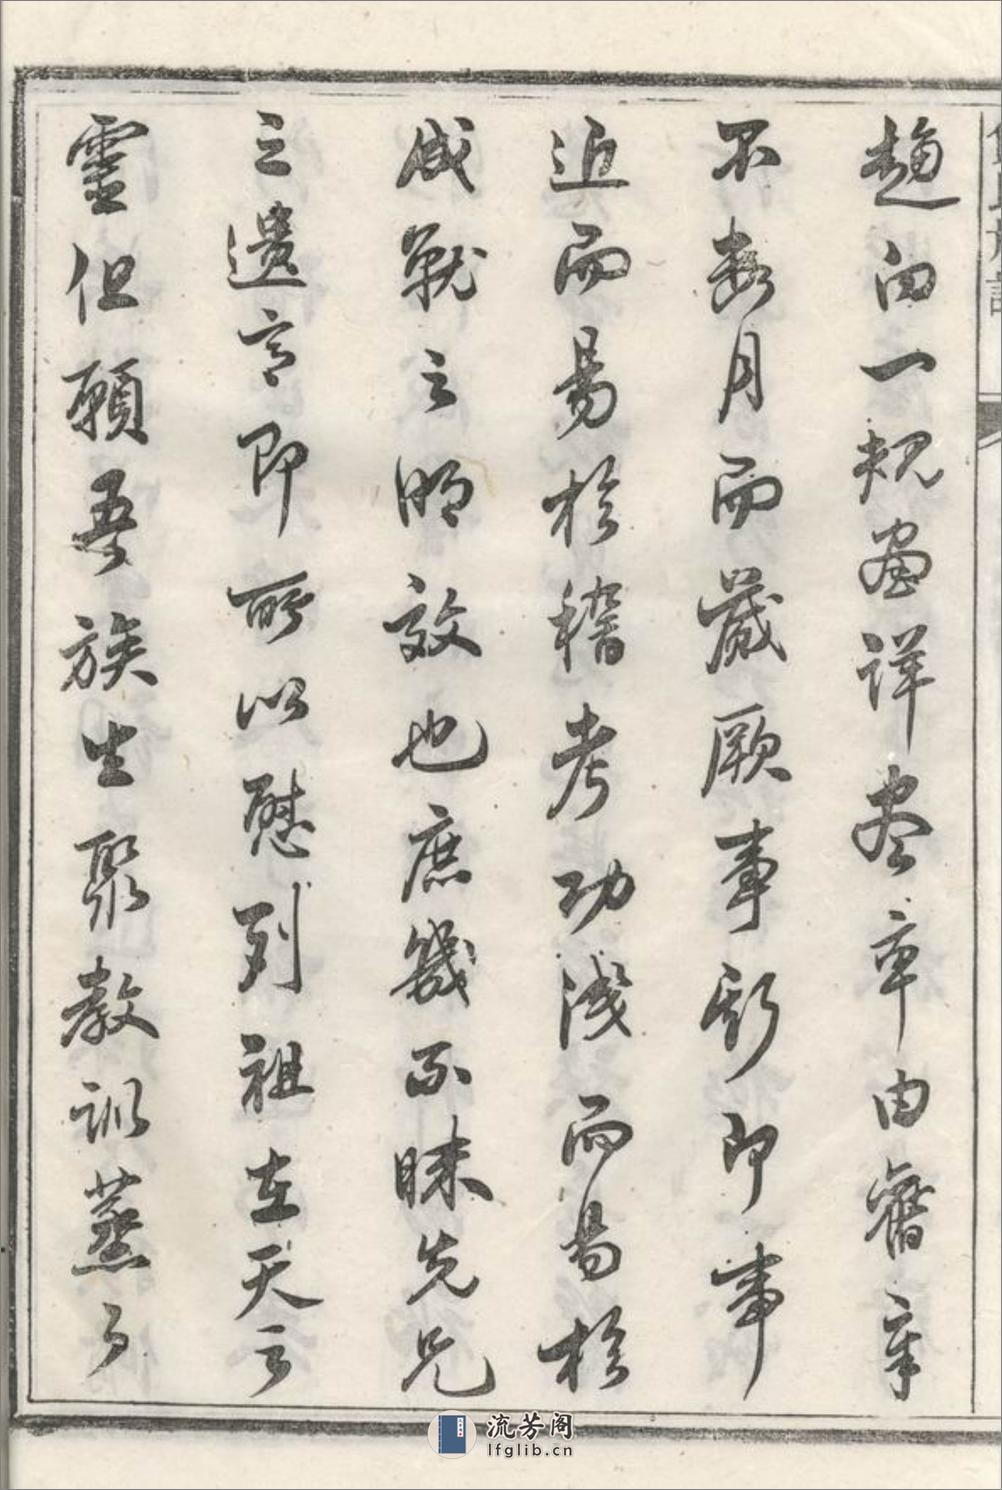 趨向一規畫詳盡章由舊章
不數月而蕆厥事斯即事
近而易於稽考功淺而易於
成業之明效也庶幾不昧先兄
之遺言即所以慰列祖在天之
靈但願吾族生聚教訓蒸々
流芳阁
lfglib.cn